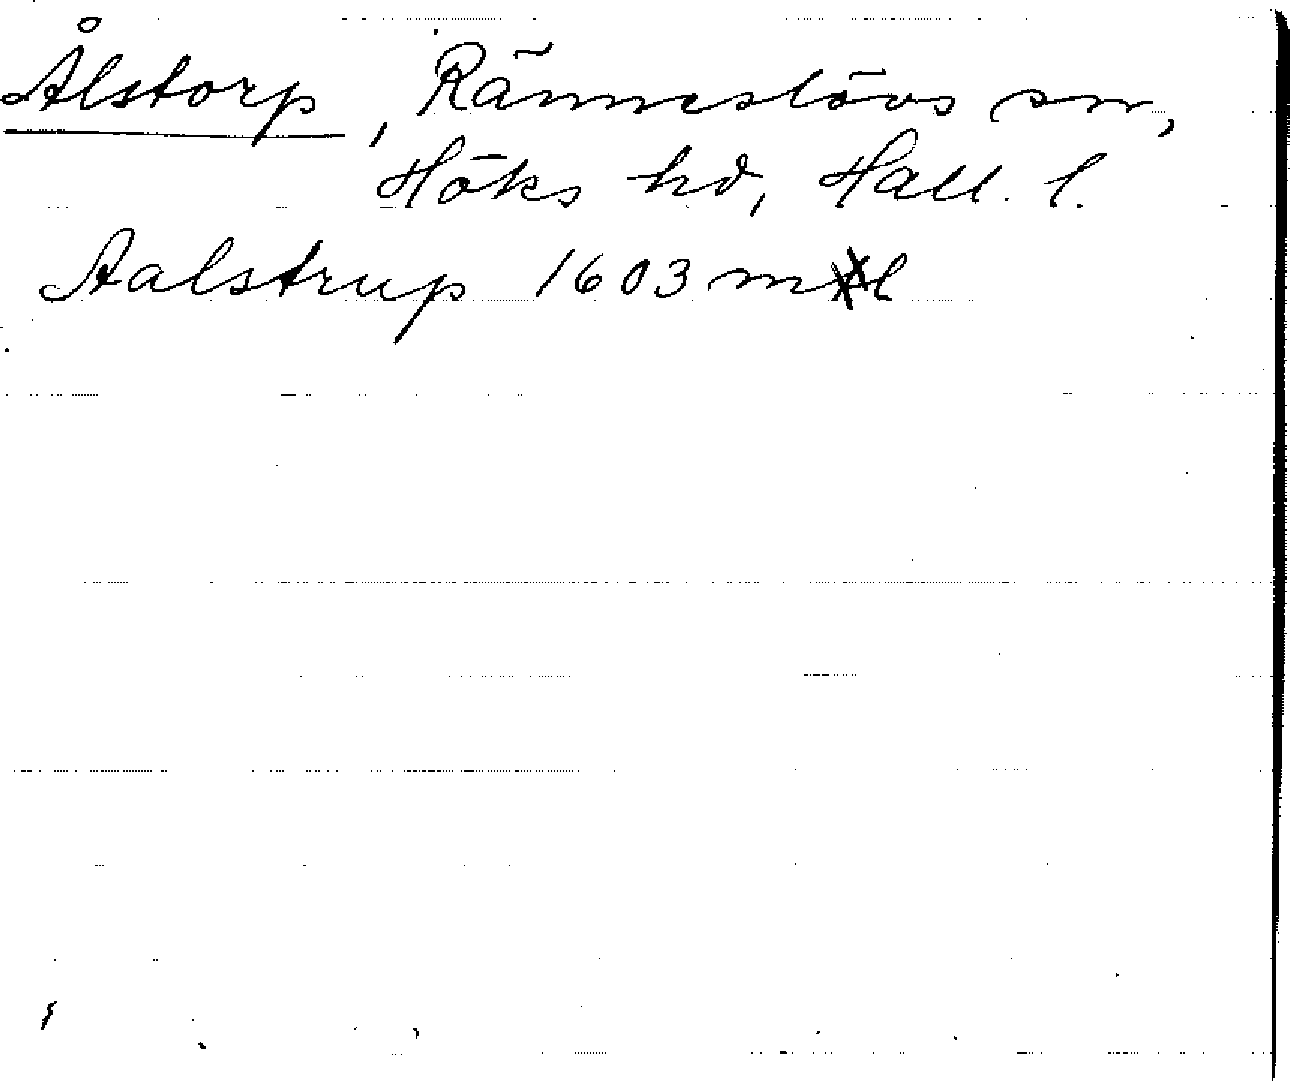 Ålstorp, Ränneslövs sn,
Höks hd, Hall. l.
Aalstrup 1603